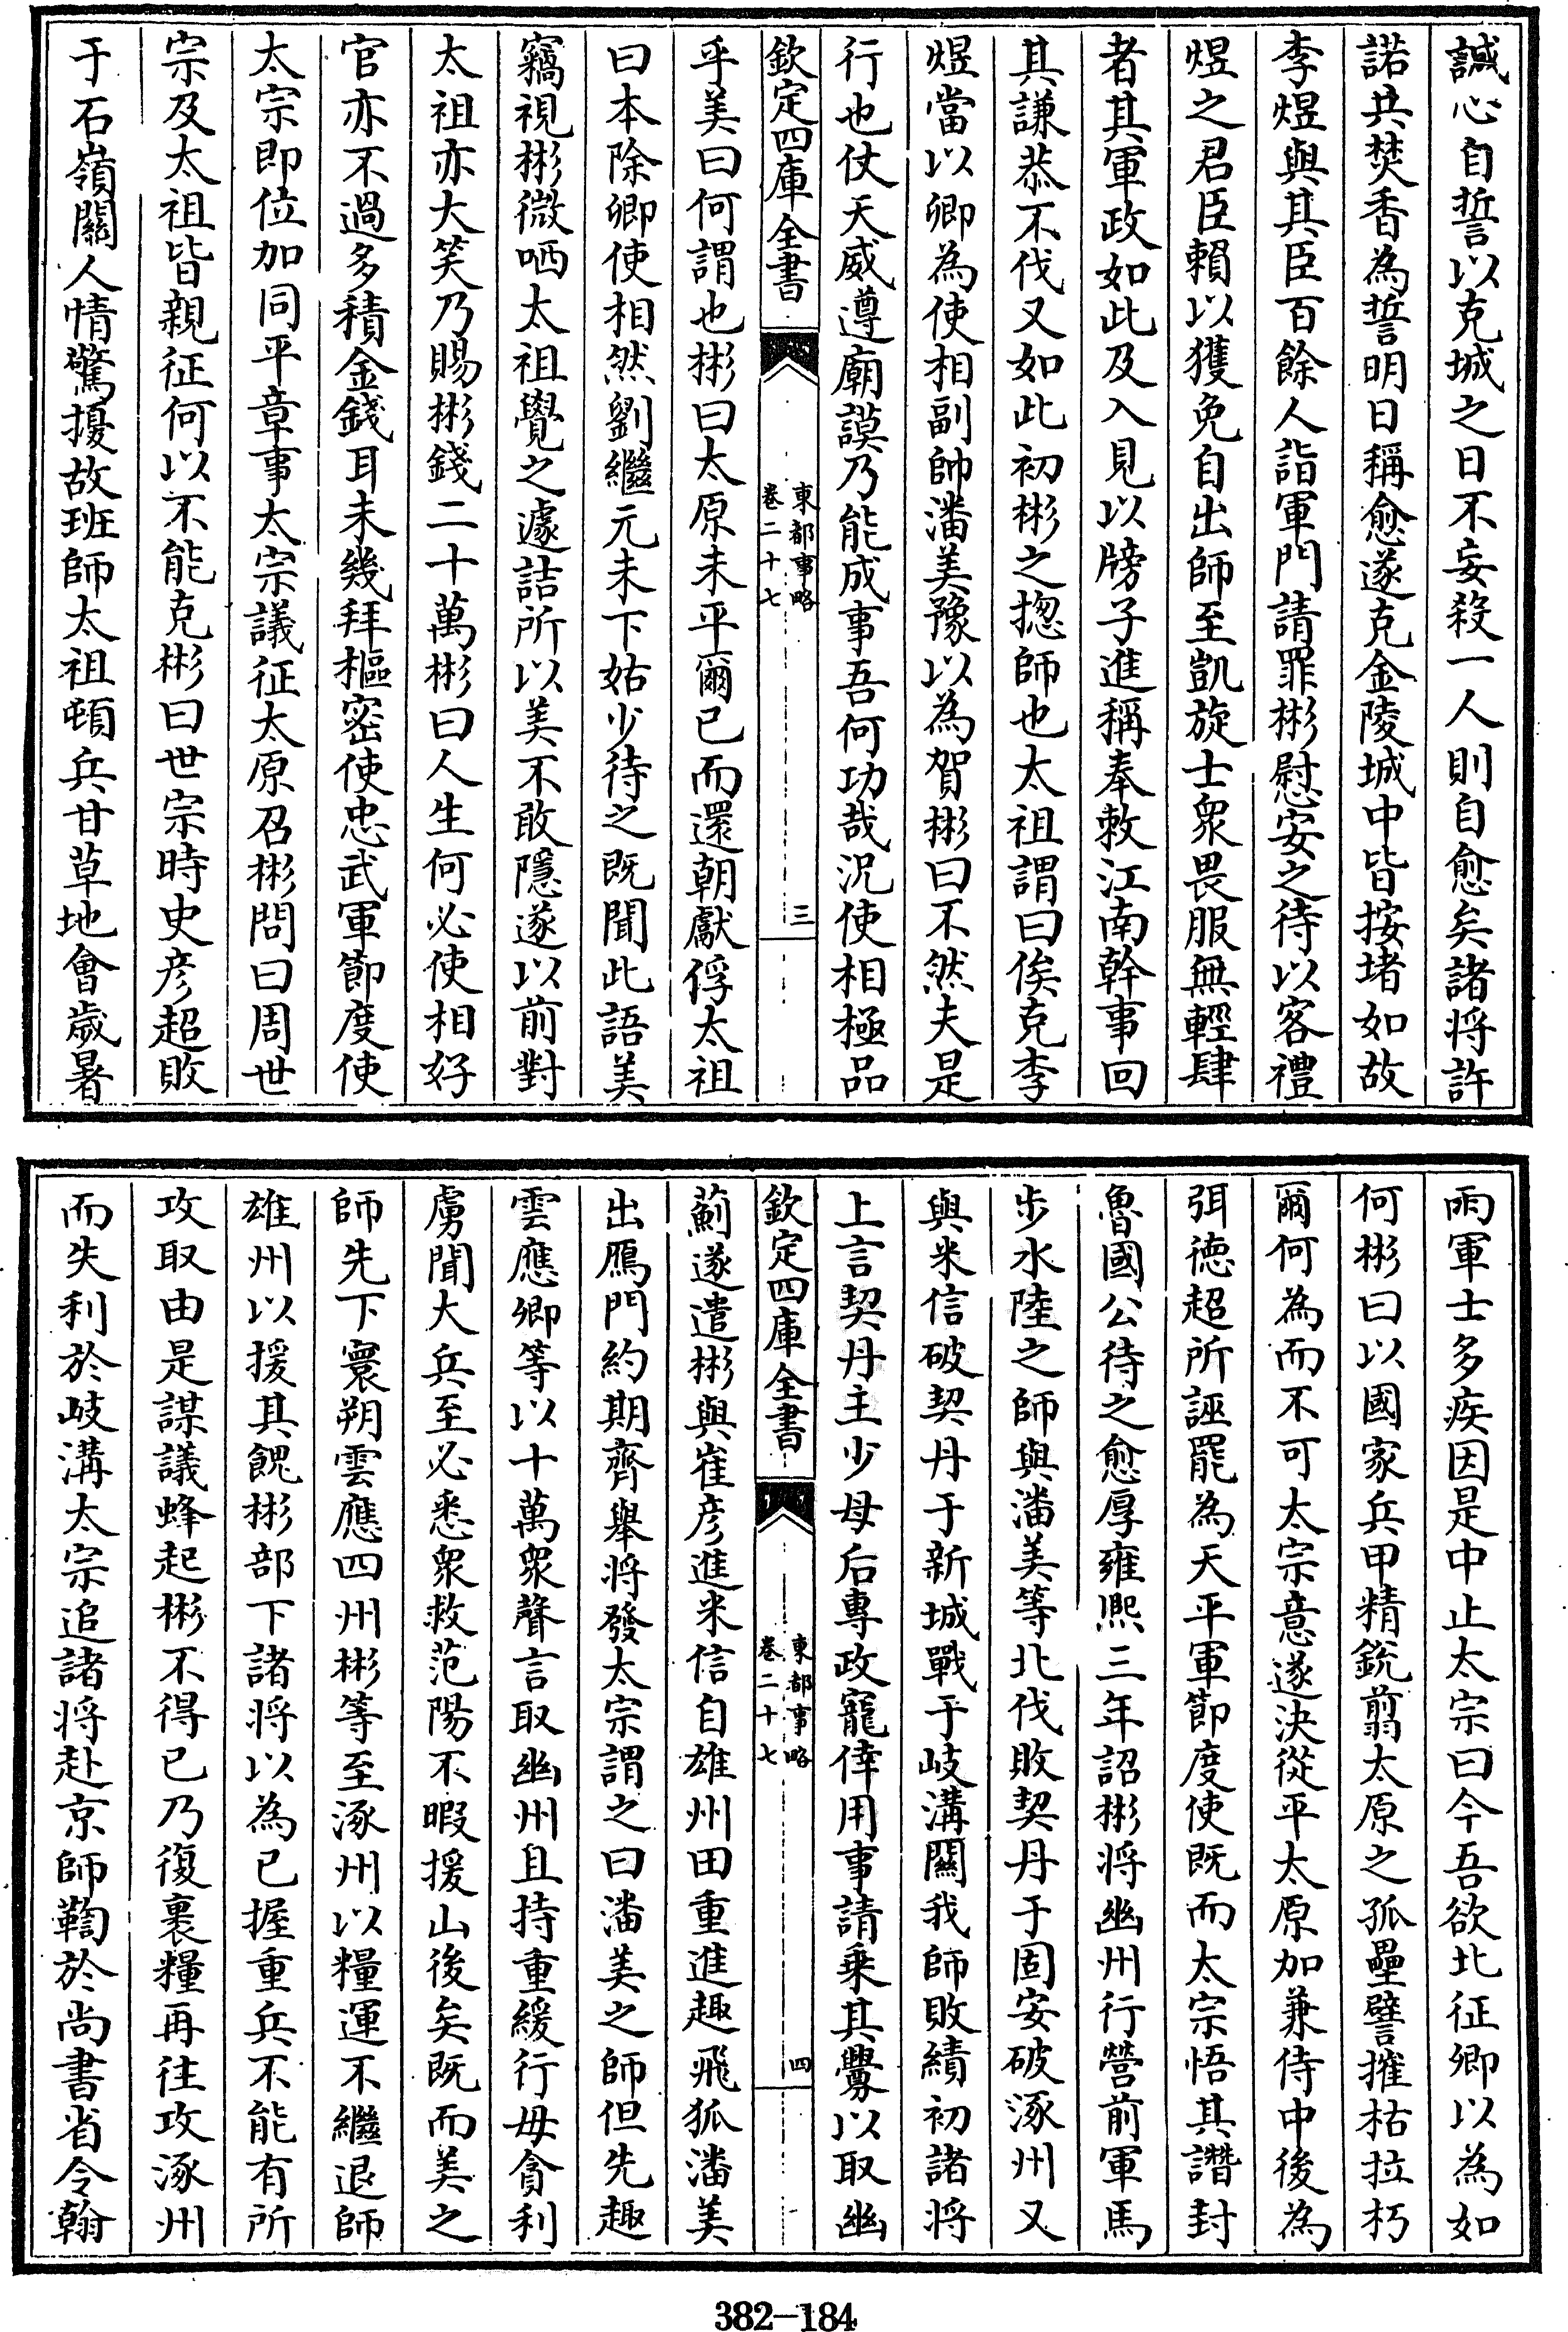 誠心自誓以克城之日不妄殺一人則自愈矣諸將許
諾共焚香為誓明日稱愈遂克金陵城中皆按堵如故
李煜與其臣百餘人詣軍門請罪彬慰安之待以客禮
煜之君臣賴以獲免自出師至凱旋士衆畏服無輕肆
者其軍政如此及入見以牓子進稱奉敕江南幹事回
其謙恭不伐又如此初彬之揔師也太祖謂曰俟克李
煜當以卿為使相副帥潘美豫以為賀彬曰不然夫是
行也仗天威遵廟謨乃能成事吾何功哉況使相極品
欽定四庫全書
東都事略
卷二十七
三
乎美曰何謂也彬曰太原未平爾已而還朝獻俘太祖
曰本除卿使相然劉繼元未下姑少待之既聞此語美
竊視彬微哂太祖覺之遽詰所以美不敢隱遂以前對
太祖亦大笑乃賜彬錢二十萬彬曰人生何必使相好
官亦不過多積金錢耳未幾拜樞密使忠武軍節度使
太宗即位加同平章事太宗議征太原召彬問曰周世
宗及太祖皆親征何以不能克彬曰世宗時史彦超敗
于石嶺關人情驚擾故班師太祖頓兵甘草地會歲暑
雨軍士多疾因是中止太宗曰今吾欲北征卿以為如
何彬曰以國家兵甲精銳翦太原之孤壘譬摧枯拉朽
爾何為而不可太宗意遂決從平太原加兼侍中後為
弭徳超所誣罷為天平軍節度使既而太宗悟其譖封
魯國公待之愈厚雍熙三年詔彬將幽州行營前軍馬
步水陸之師與潘美等北伐敗契丹于固安破涿州又
與米信破契丹于新城戰于岐溝關我師敗績初諸將
上言契丹主少母后專政寵倖用事請乗其釁以取幽
欽定四庫全書
東都事略
卷二十七
四
薊遂遣彬與崔彦進米信自雄州田重進趣飛狐潘美
出鴈門約期齊舉將發太宗謂之曰潘美之師但先趣
雲應卿等以十萬衆聲言取幽州且持重緩行毋貪利
虜聞大兵至必悉衆救范陽不暇援山後矣既而美之
師先下寰朔雲應四州彬等至涿州以糧運不繼退師
雄州以援其餽彬部下諸將以為已握重兵不能有所
攻取由是謀議蜂起彬不得已乃復裹糧再往攻涿州
而失利於岐溝太宗追諸將赴京師鞫於尚書省令翰
382-184